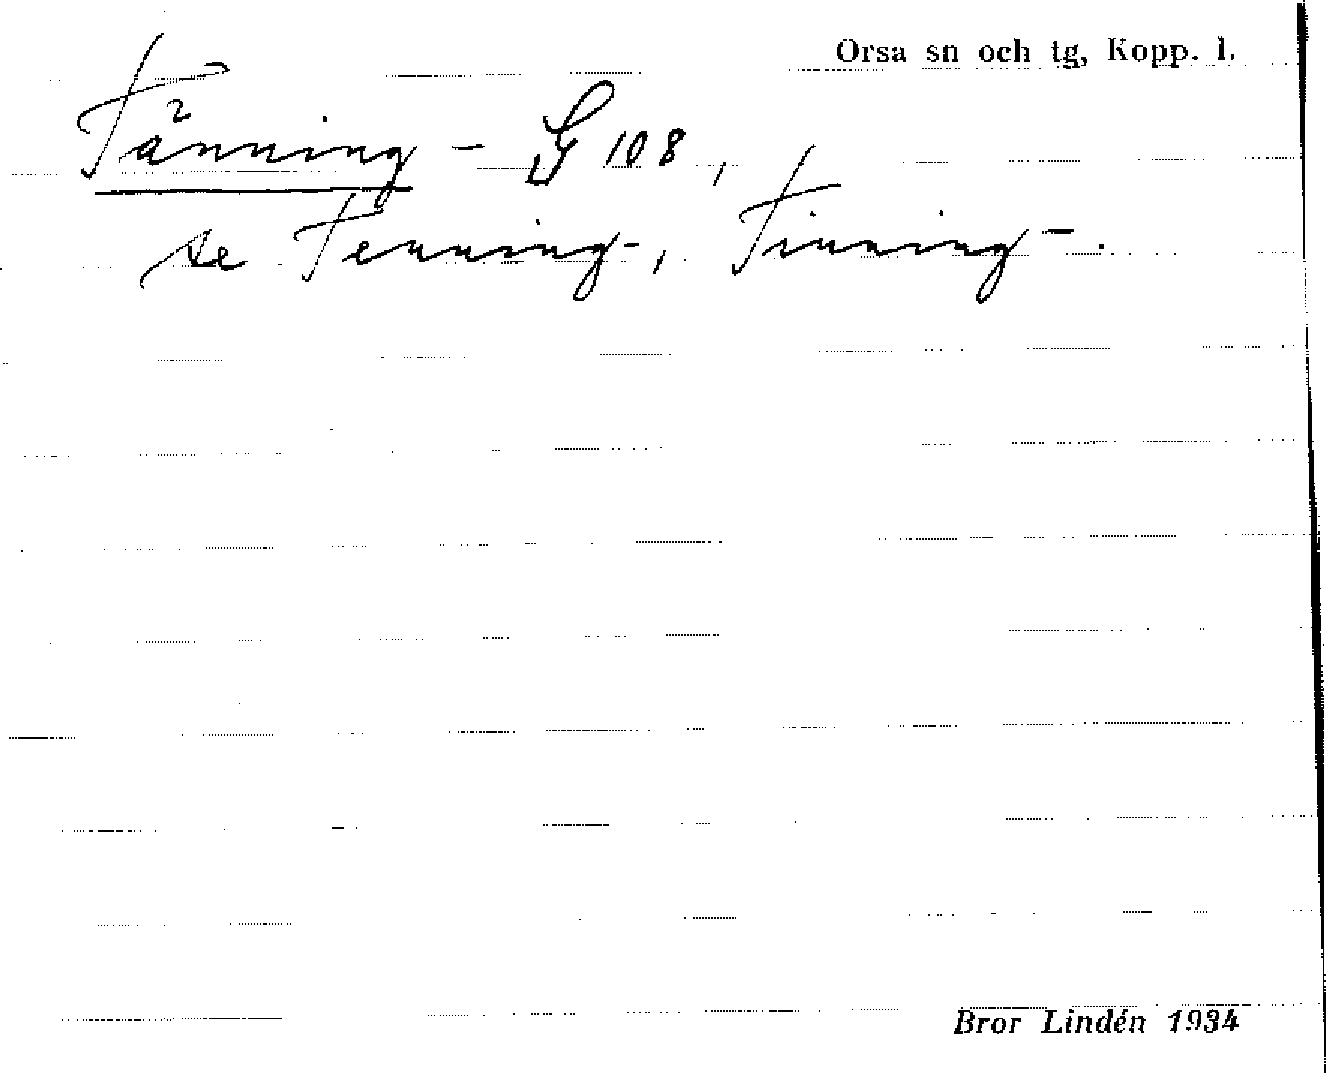 Orsa sn och tg, Kopp. l.
Tänning - G 108,
se Tenning-, Tinning-.
Bror Lindén 1934